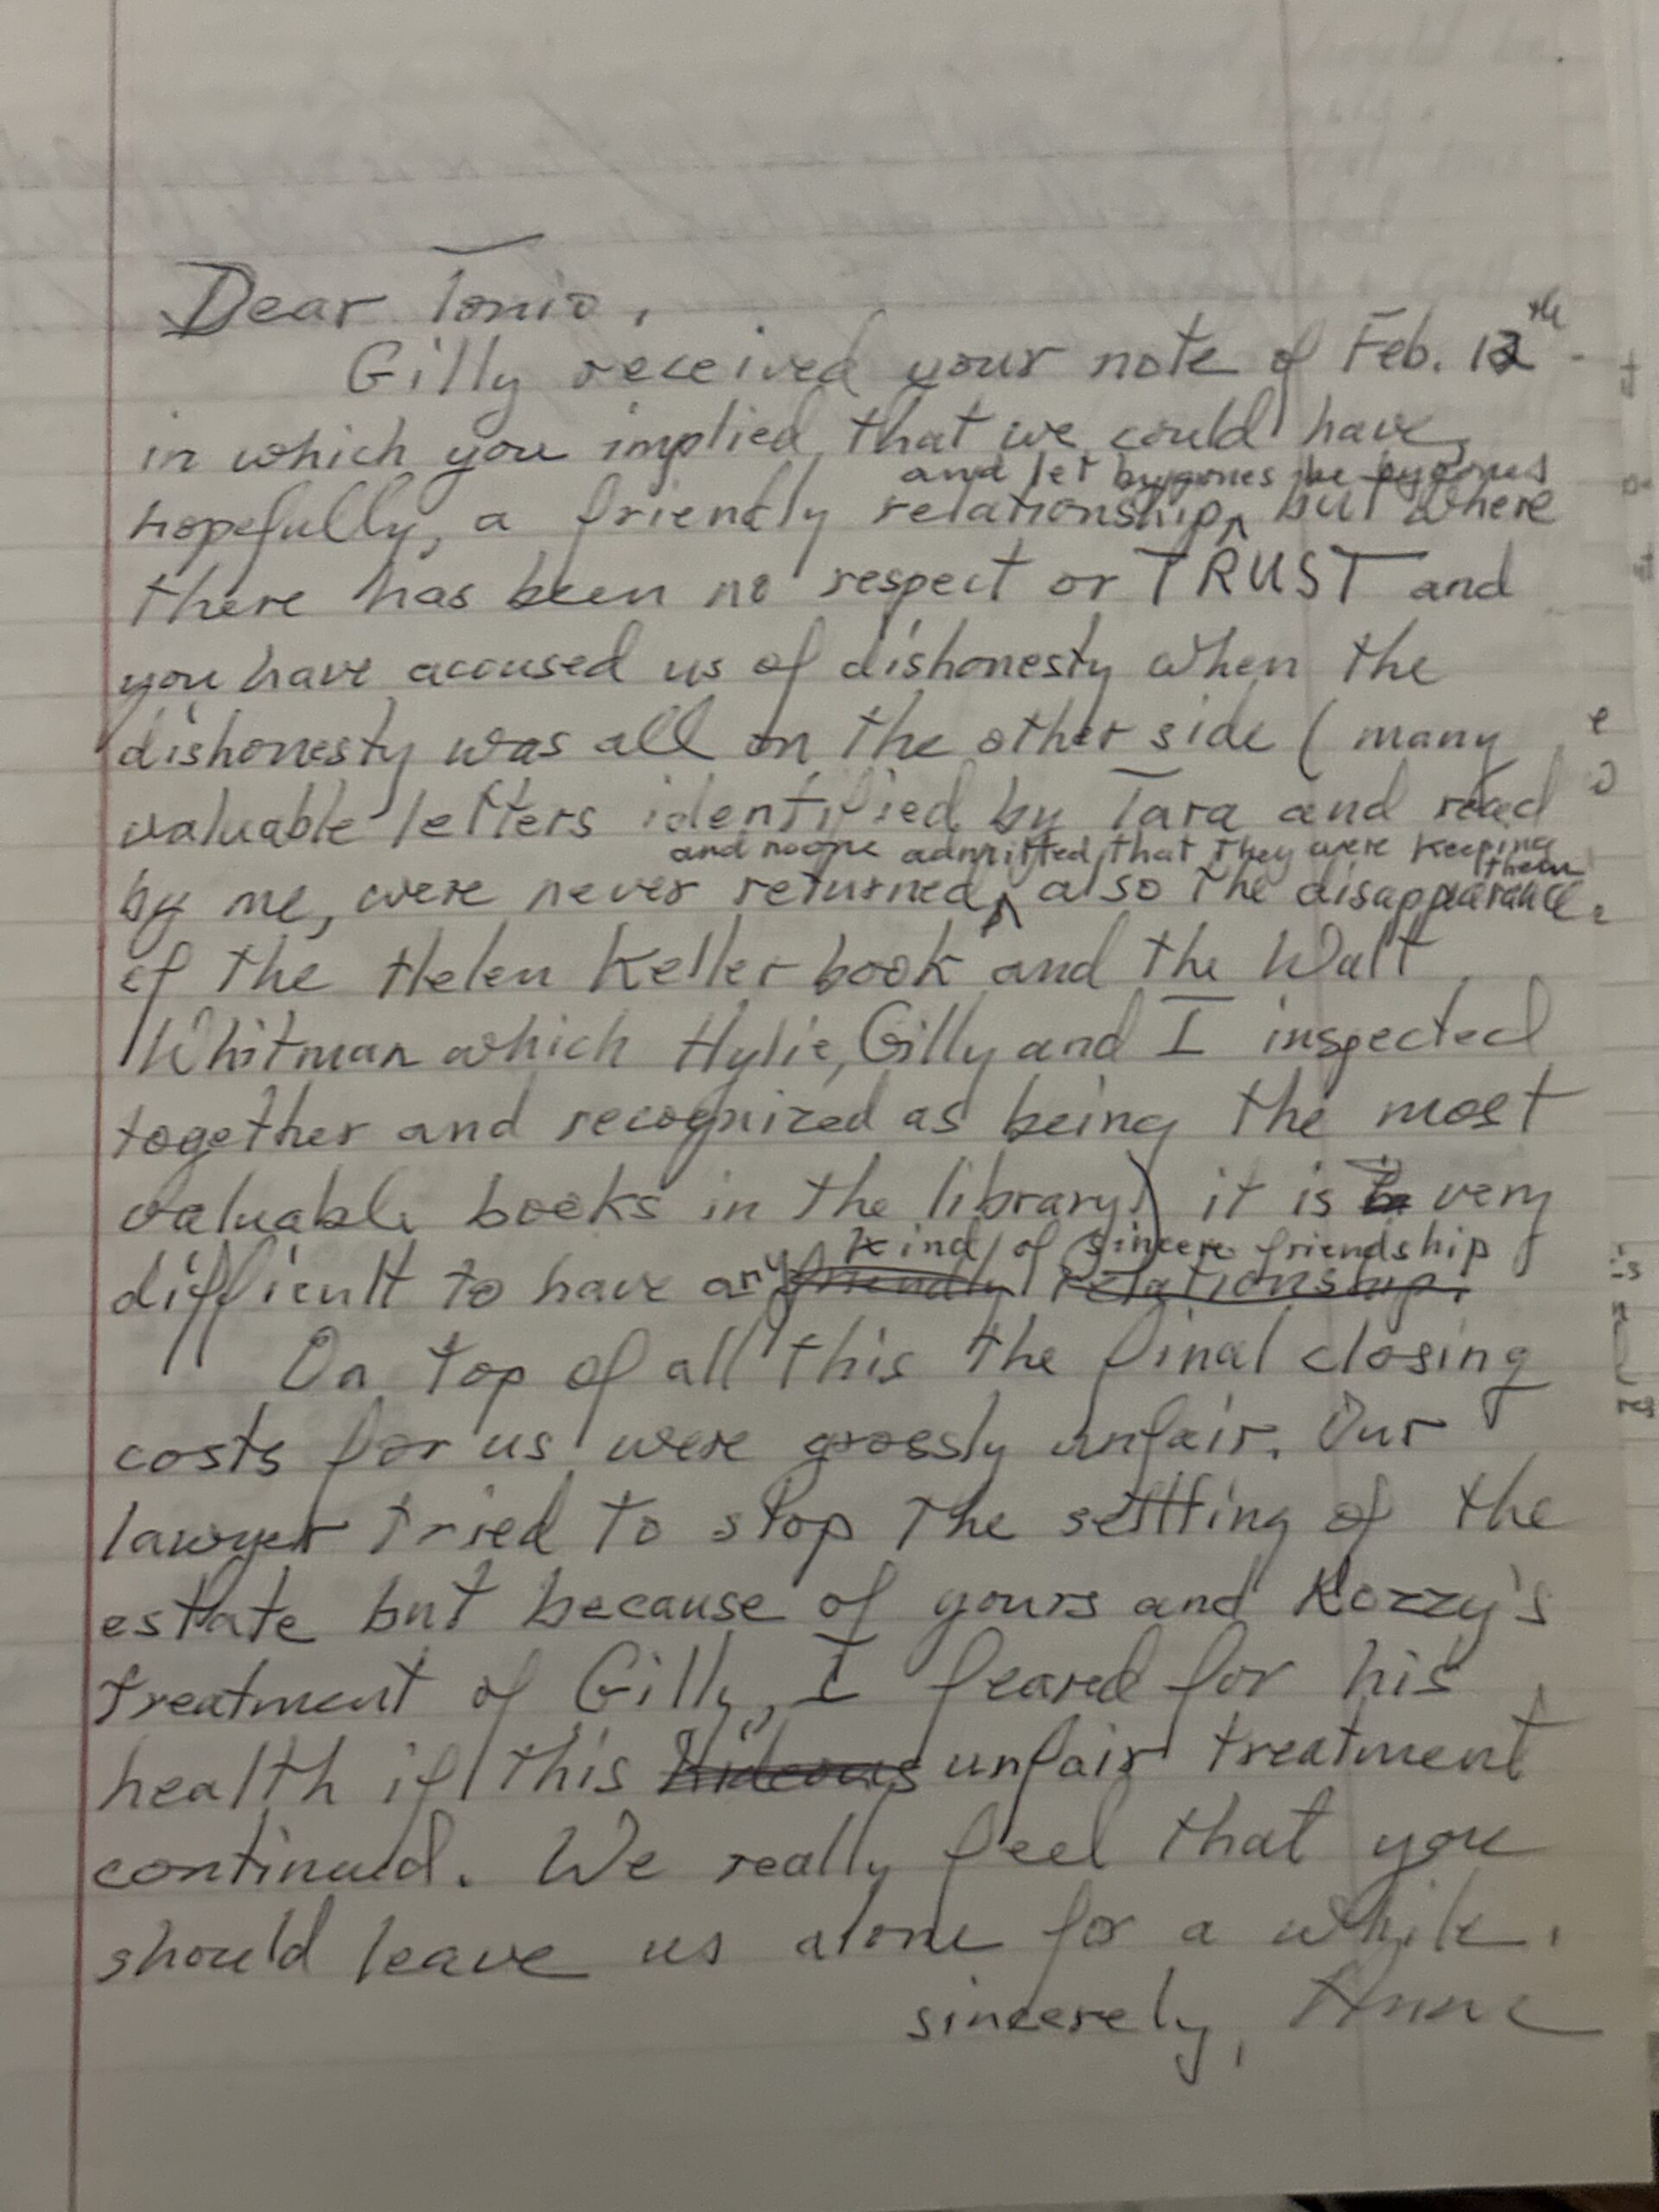 Dear Tonio,
Gilly received your note of Feb. 12th
in which you implied that we could have,
and let bygones be bygones
hopefully, a friendly relationship, but where
there has been no respect or TRUST and
you have accused us of dishonesty when the
dishonesty was all on the other side ( many
valuable letters identified by Tara and read
and noone admitted that they were keeping
them
by me, were never returned, also the disappearance
of the Helen Keller book and the Walt
Whitman which Hylie, Gilly and I inspected
together and recognized as being the most
valuable books in the library) it is very
kind of sincere friendship
difficult to have any friendly relationship.
On top of all this the final closing
costs for us were grossly unfair. Our
lawyer tried to stop the settling of the
estate but because of yours and Rozzy's
treatment of Gilly, I feared for his
health if this hideous unfair treatment
continued. We really feel that you
should leave us alone for a while.
sincerely, Anne